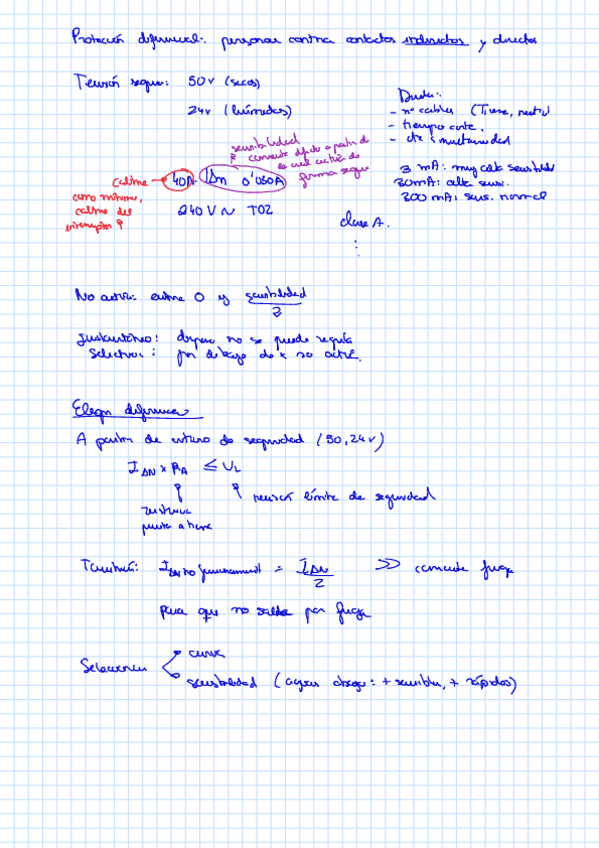 Protección diferencial: personas contra contactos indirectos y directos
Tensión segura: 50 V (secos)
24 V (húmedos)
Dudas:
- nº cables (Tierra, neutro)
- tiempo corte,
- cte
sensibilidad
corriente dif a partir de
la cual actúa de
forma segura
calibre
40A IΔn 0'030A
como mínimo,
calibre del
interruptor
240 V ~ T02
3 mA: muy alta sensibilidad
30mA: alta sens.
300 mA: sens. normal
clase A.
No actúa: entre 0 y sensibilidad
2
Instantáneo: disparo no se puede regular
Selectivos: por debajo de x no actúa.
Elegir diferencial
A partir de criterio de seguridad (50, 24 V)
I ΔN x RA ≤ UL
tensión límite de seguridad
resistencia
puesta a tierra
También: I ΔN no funcionamiento = IΔN >> corriente fuga
2
para que no salte por fuga
Selectividad
curva
sensibilidad (aguas abajo: + sensibles, + rápidos)